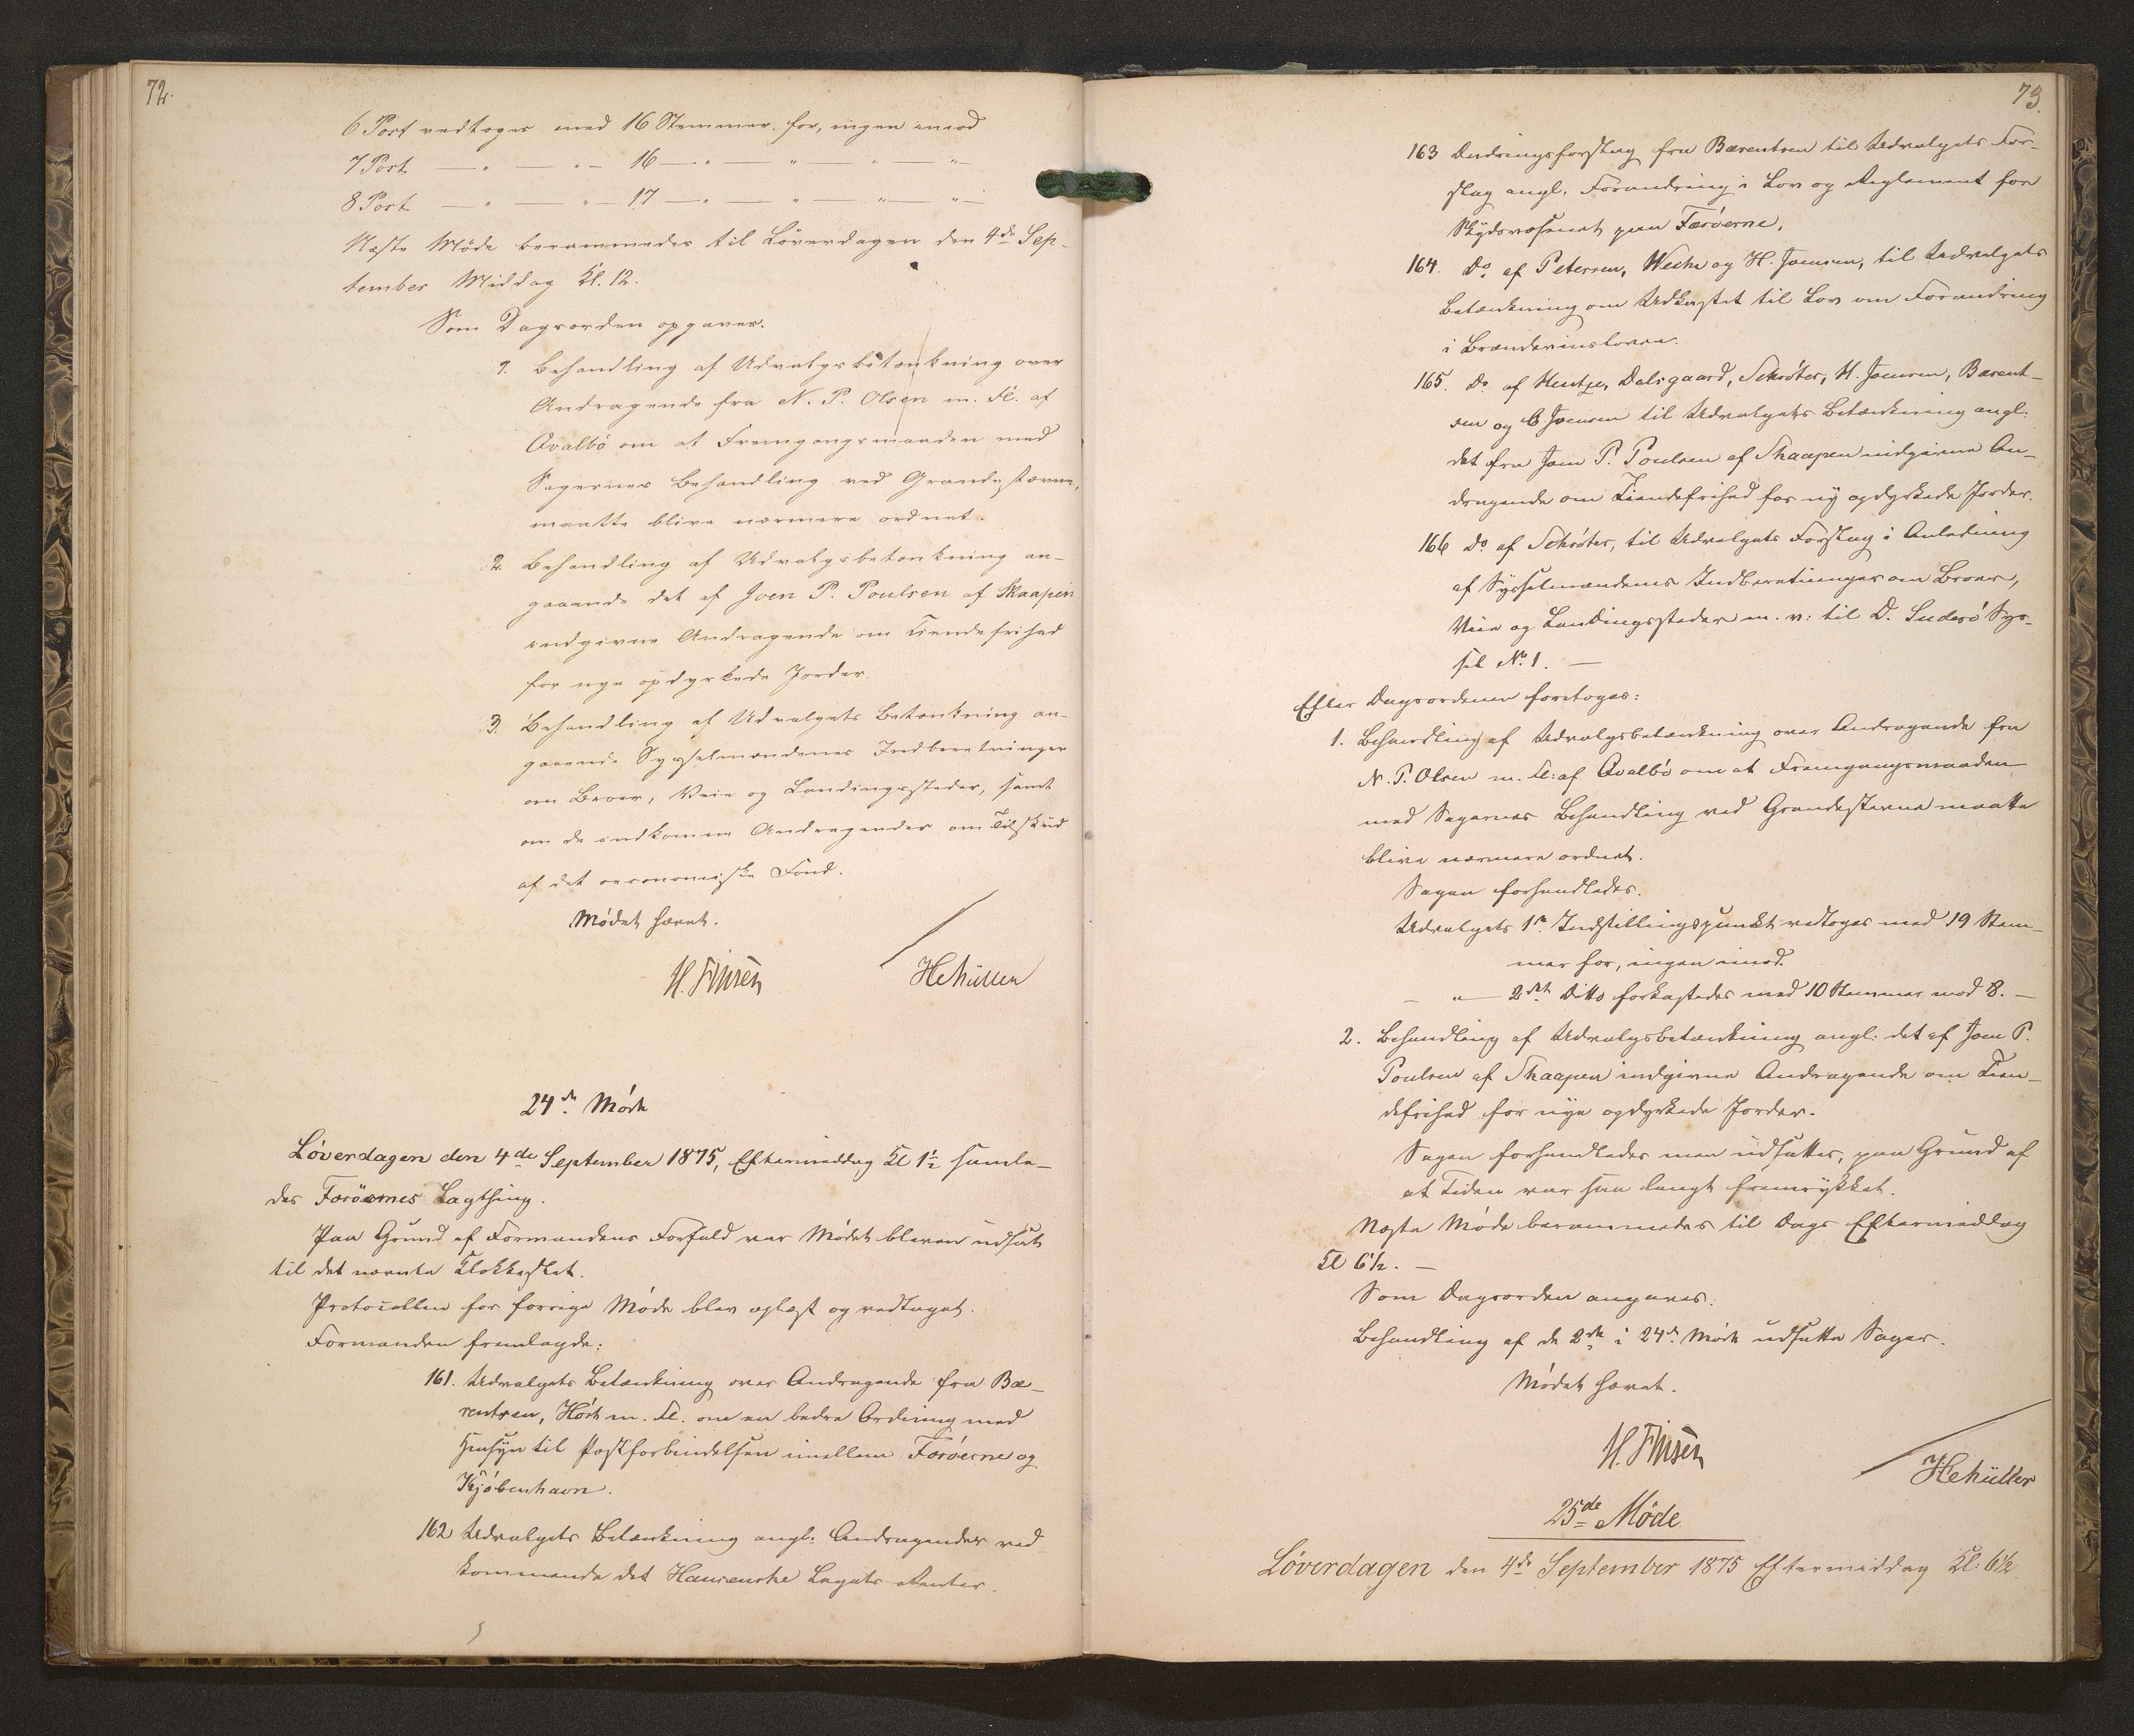 72.
6 Post vedtoges med 16 Stemmer for, ingen imod
7 Post — " — " — 16 — " — " — " — " —
8 Post — " — " — 17 — " — " — " — " —
Næste Møde berammedes til Löverdagen den 4de Sep-
tember Middag Kl. 12.
Som Dagsorden opgaves.
1. Behandling af Udvalgsbetænkning over
Andragende fra N. P. Olsen m. Fl. af
Qvalbö om at Fremgangsmaaden med
Sagernes Behandling ved Grandestævne,
maatte blive nærmere ordnet.
2. Behandling af Udvalgsbetænkning an-
gaaende det af Joen P. Poulsen af Skaapen
indgivne Andragende om Tiendefrihed
for nye opdyrkede Jorder.
3. Behandling af Udvalgets Betænkning an-
gaaende Sysselmændenes Indberetninger
om Broer, Veie og Landingssteder, samt
om de indkomne Andragender om Tilskud
af det oeconomiske Fond.
Mödet hævet.
H. Finsen HCMüller
24de Möde
Löverdagen den 4de September 1875, Eftermiddag Kl 1½ samle-
des Færöernes Lagthing.
Paa Grund af Formandens Forfald var Mödet bleven udsat
til det nævnte Klokkeslet.
Protocollen for forrige Möde blev oplæst og vedtaget.
Formanden fremlagde:
161. Udvalgets Betænkning over Andragende fra Bæ-
rentsen, Höst m. Fl. om en bedre Ordning med
Hensyn til Postforbindelsen imellem Færöerne og
Kjöbenhavn.
162 Udvalgets Betænkning angl. Andragender ved-
kommende det Hansenske Legats Renter.
73.
163 Ændringsforslag fra Bærentsen til Udvalgets For-
slag angl. Forandring i Lov og Reglement for
Skydsvæsenet paa Færöerne.
164. Do af Petersen, Weihe og H. Joensen, til Udvalgets
Betænkning om Udkastet til Lov om Forandring
i Brændevinsloven.
165. Do af Hentze, Dalsgaard, Schröter, H. Joensen, Bærent-
sen og C. Joensen til Udvalgets Betænkning angl.
det fra Joen P. Poulsen af Skaapen indgivne An-
dragende om Tiendefrihed for ny opdyrkede Jorder.
166 Do af Schröter, til Udvalgets Forslag i Anledning
af Sysselmændenes Indberetninger om Broer,
Veie og Landingssteder m. v: til D. Suderö Sys-
sel No 1. —
Efter Dagsordenen foretoges:
1. Behandling af Udvalgsbetænkning over Andragende fra
N. P. Olsen m. Fl: af Qvalbö om at Fremgangsmaaden
med Sagernes Behandling ved Grandestevne maatte
blive nærmere ordnet.
Sagen forhandledes.
Udvalgets 1ste Indstillingspunkt vedtoges med 19 Stem-
mer for, ingen imod.
— " — 2det Ditto forkastedes med 10 Stemmer mod 8. —
2. Behandling af Udvalgsbetænkning angl: det af Joen P.
Poulsen af Skaapen indgivne Andragende om Tien-
defrihed for nye opdyrkede Jorder.
Sagen forhandledes men udsattes, paa Grund af
at Tiden var saa langt fremrykket.
Næste Möde berammedes til Dags Eftermiddag
Kl 6½. —
Som Dagsorden angaves:
Behandling af de 2de i 24de Möde udsatte Sager.
Mödet hævet.
H. Finsen HCMüller
25de Möde
Löverdagen den 4de September 1875 Eftermiddag Kl: 6½